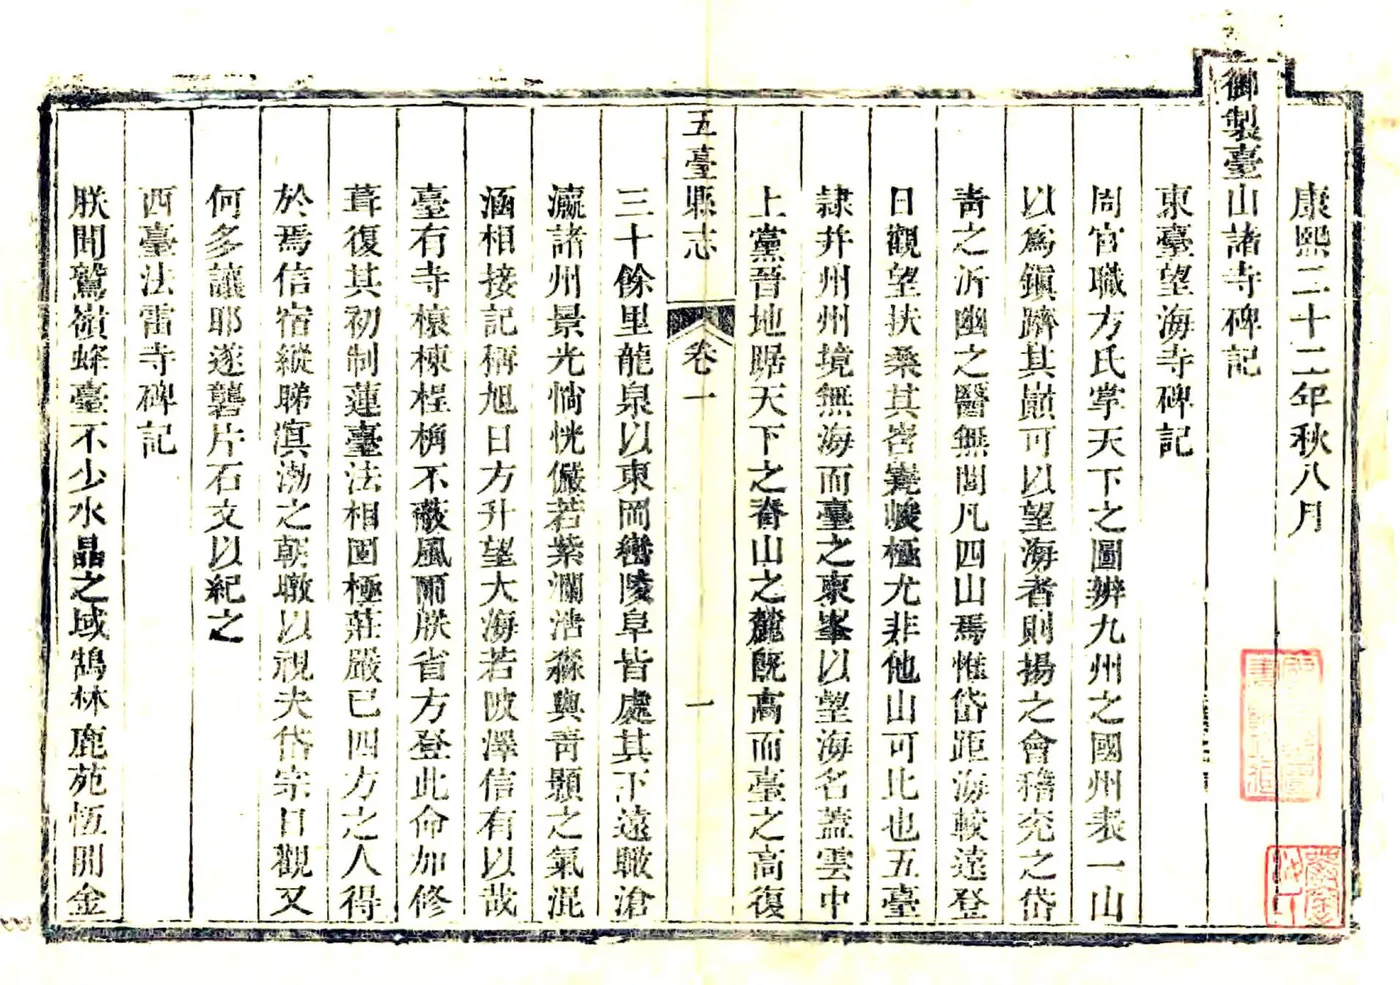 康熙二十二年秋八月
御製臺山諸寺碑記
東臺望海寺碑記
周官職方氏掌天下之圖辨九州之國州表一山
以爲鎭躋其巔可以望海者則揚之會稽兖之岱
靑之沂幽之醫無閭凡四山焉惟岱距海較遠登
日觀望扶桑其岧嶤峻極尤非他山可比也五臺
隷并州州境無海而臺之東峯以望海名蓋雲中
上黨晉地踞天下之脊山之麓旣高而臺之高復
五臺縣志 卷一 一
三十餘里龍泉以東岡巒陵阜皆處其下遠瞰滄
瀛諸州景光惝恍儼若紫瀾浩淼與靑顥之氣混
涵相接記稱旭日方升望大海若陂澤信有以哉
臺有寺榱棟桯桷不蔽風雨朕省方登此命加修
葺復其初制蓮臺法相固極莊嚴已四方之人得
於焉信宿縱睇溟渤之朝暾以視夫岱宗日觀又
何多讓耶遂礱片石文以紀之
西臺法雷寺碑記
朕聞鷲嶺蜂臺不少水晶之域鵠林鹿苑恆開金